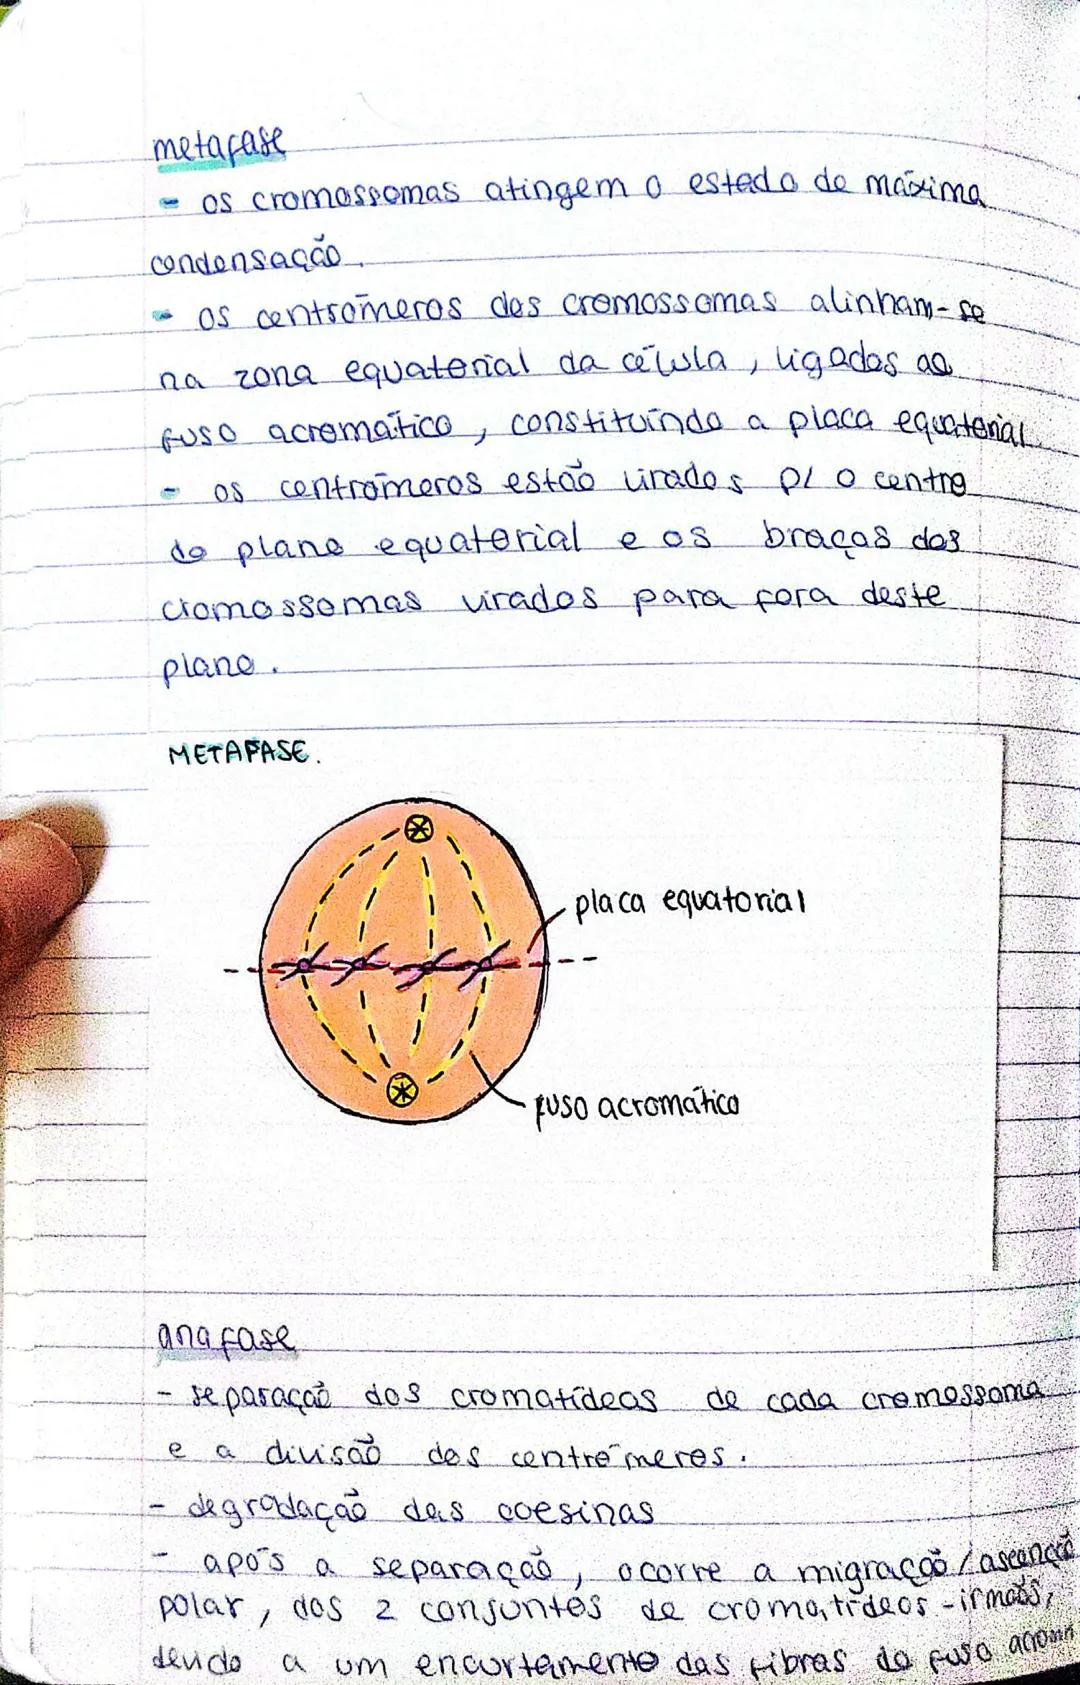 metafase
- os cromossomas atingem o estado de máxima
condensação.
- os centrómeros dos cromossomas alinham-se
na zona equatorial da célula, ligados ao
fuso acromático, constituíndo a placa equatorial
- os centrómeros estão virados p/ o centro
do plano equatorial e os braços dos
cromossomas virados para fora deste
plano.
METAFASE.
placa equatorial
fuso acromático
anafase
- separação dos cromatídeos de cada cromossoma
e a divisão dos centrómeros.
- degradação das coesinas
- após a separação, ocorre a migração/ascenção
polar, dos 2 conjuntos de cromatídeos-irmãos,
devido a um encurtamento das fibras do fuso